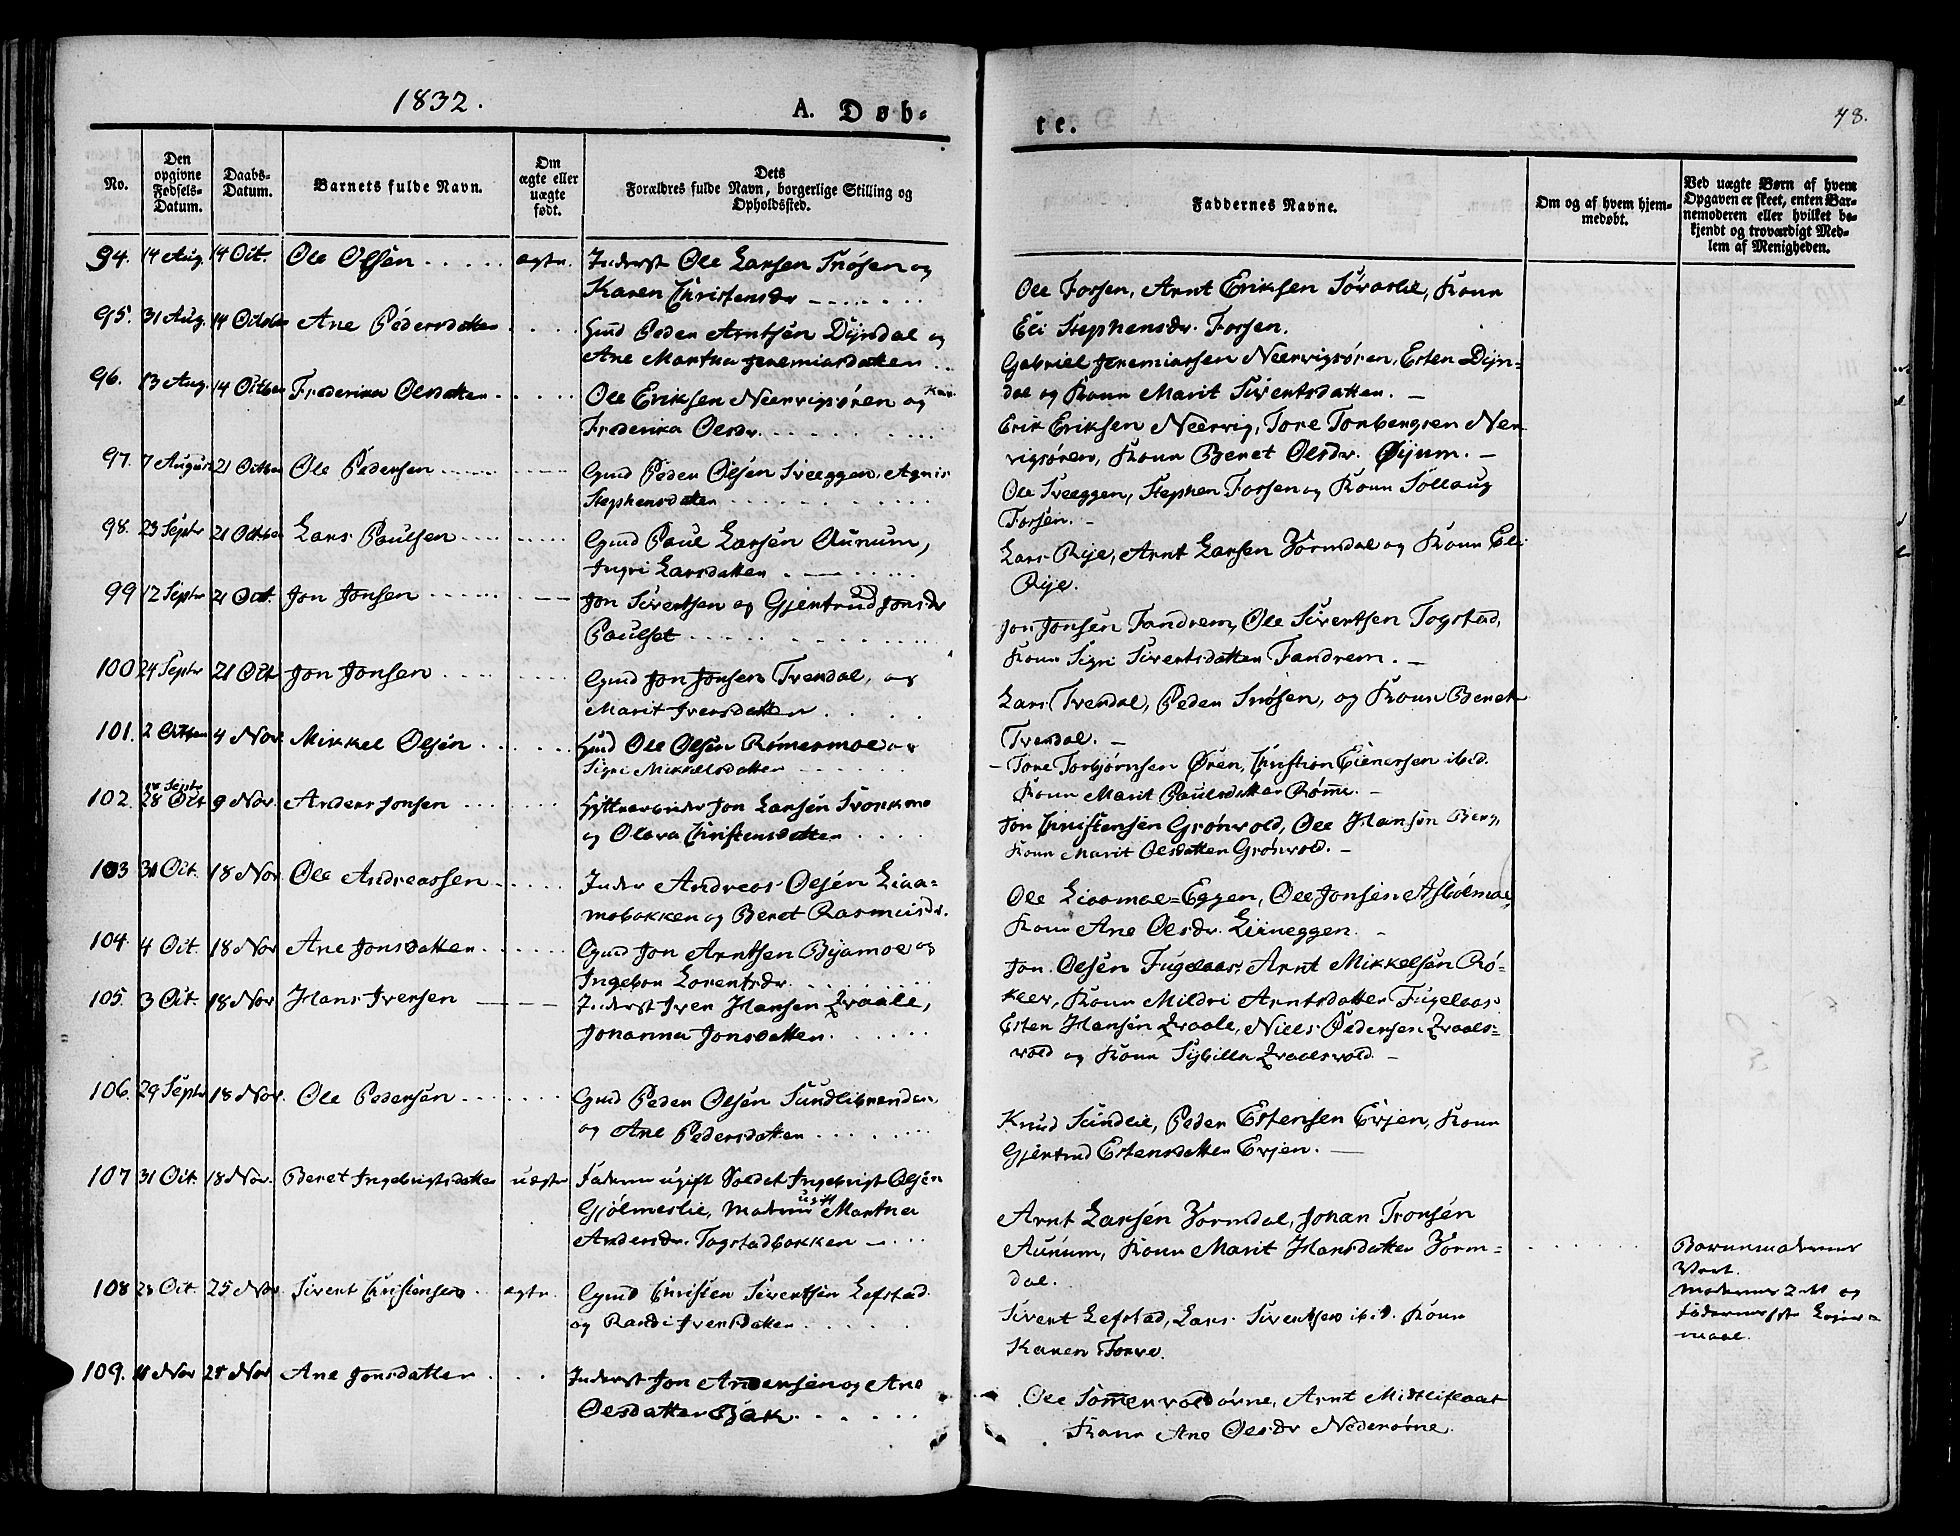 1832.
A. Døb-
te.
78.
No.
Den
opgivne
Fødsels-
Datum.
Daabs-
Datum.
Barnets fulde Navn.
Om
ægte eller
uægte
født.
Dets
Forældres fulde Navn, borgerlige Stilling og
Opholdssted.
Faddernes Navne.
Om og af hvem hjem-
medøbt.
Ved uægte Børn af hvem
Opgaven er skeet, enten Bar-
nemoderen eller hvilket be-
kjendt og troværdigt Med-
lem af Menigheden.
94. 14 Aug. 14 Oct. Ole Olsen ægte. Inderst Ole Larsen Snøsen og
Karen Christensdr
Ole Forsen, Arnt Eriksen Søraslie, Kone
Eli Stephensdr. Forsen.
95. 31 Aug. 14 Octobr Ane Pedersdatter Gmd Peder Arntsen Dijrdal og
Ane Martha Jeremiasdatter
Gabriel Jeremiassen Neervigsøren, Esten Dijr-
dal og Kone Marit Sivertsdatter.
96. 13 Aug. 14 Octbr Frederika Olsdatter Ole Eriksen Neervigsøren og
Frederika Olsdr.
Erik Eriksen Neervig, Tore Torbergsen Neer-
vigsøren, Kone Beret Olsdr. Øijum.
97. 7 August 21 Octbr Ole Pedersen Gmd Peder Olsen Sveeggen, Agnis
Stephensdatter
Ole Sveeggen, Stephen Forsen og Kone Sollaug
Forsen.
98. 23 Septr 21 Octbr Lars Paulsen Gmd Paul Larsen Aunum,
Ingri Larsdatter
Lars Rije, Arnt Larsen Vormdal og Kone Eli
Rije.
99 12 Septr 21 Oct. Jon Jonsen Jon Sivertsen og Gjertrud Jonsdr
Paulset
Jon Jonsen Fandrem, Ole Sivertsen Togstad,
Kone Sigri Sivertsdatter Fandrem.
100 24 Septr 21 Oct Jon Jonsen Gmd Jon Jonsen Tverdal, og
Marit Iversdatter
Lars Tverdal, Peder Snøsen, og Kone Beret
Tverdal.
101. 2 Octbr 4 Nov. Mikkel Olsen Gmd Ole Olsen Rømermoe og
Sigri Mikkelsdatter
Tore Torbjørnsen Øren, Christian Einersen ibid.
Kone Marit Paulsdatter Rømme.
102. 28 Oct 9 Nov. Anders Jonsen Hyttearbeider Jon Larsen Svorkmo
og Olava Christensdatter
Jon Christensen Grønvold, Ole Hansen Berg,
Kone Marit Olsdatter Grønvold.
103 31 Oct. 18 Nov Ole Andreassen Inder Andreas Olsen Liaa-
mobakken og Beret Rasmusdr.
Ole Liaamoe-Eggen, Ole Jonsen Asbølmoe,
Kone Ane Olsdr. Liineggen.
104. 4 Oct. 18 Nov Ane Jonsdatter Gmd Jon Arntsen Byamoe og
Ingebor Lorentsdr.
Jon Olsen Fugelaas, Arnt Mikkelsen Rø-
kees, Kone Mildri Arntsdatter Fugelaas.
105. 3 Oct. 18 Nov Hans Iversen Inderst Iver Hansen Qvaale,
Johanna Jonsdatter
Esten Hansen Qvaale, Niels Pedersen Qvaals-
vold og Kone Sijbilla Qvaalsvold
106. 29 Septr 18 Nov. Ole Pedersen Gmd Peder Olsen Sundlibrenden
og Ane Pedersdatter
Knud Sundlie, Peder Estensen Evjen, Kone
Gjertrud Estensdatter Evjen.
107 31 Oct. 18 Nov. Beret Ingebrigtsdatter uægte Faderen ugift Soldat Ingebrigt Olsen
Gjølmeslie, Moderen ugift Martha
Andersdr. Togstadbakken
Arnt Larsen Vormdal, Johan Tronsen
Aunum, Kone Marit Hansdatter Vorm-
dal.
Barnemoderens
Moderens 2det og
Faderens 1ste Leier-
maal.
108 28 Oct. 25 Nov Sivert Christensen ægte. Gmd Christen Sivertsen Lefstad
og Randi Iversdatter
Sivert Lefstad, Lars Sivertsen ibid. Kone
Karen Torve.
109. 11 Nov 25 Nov Ane Jonsdatter Inderst Jon Andersen og Ane
Olsdatter Bjøk
Ole Somervoldørne, Arnt Midtliflaat
Kone Ane Olsdr Nederørne.